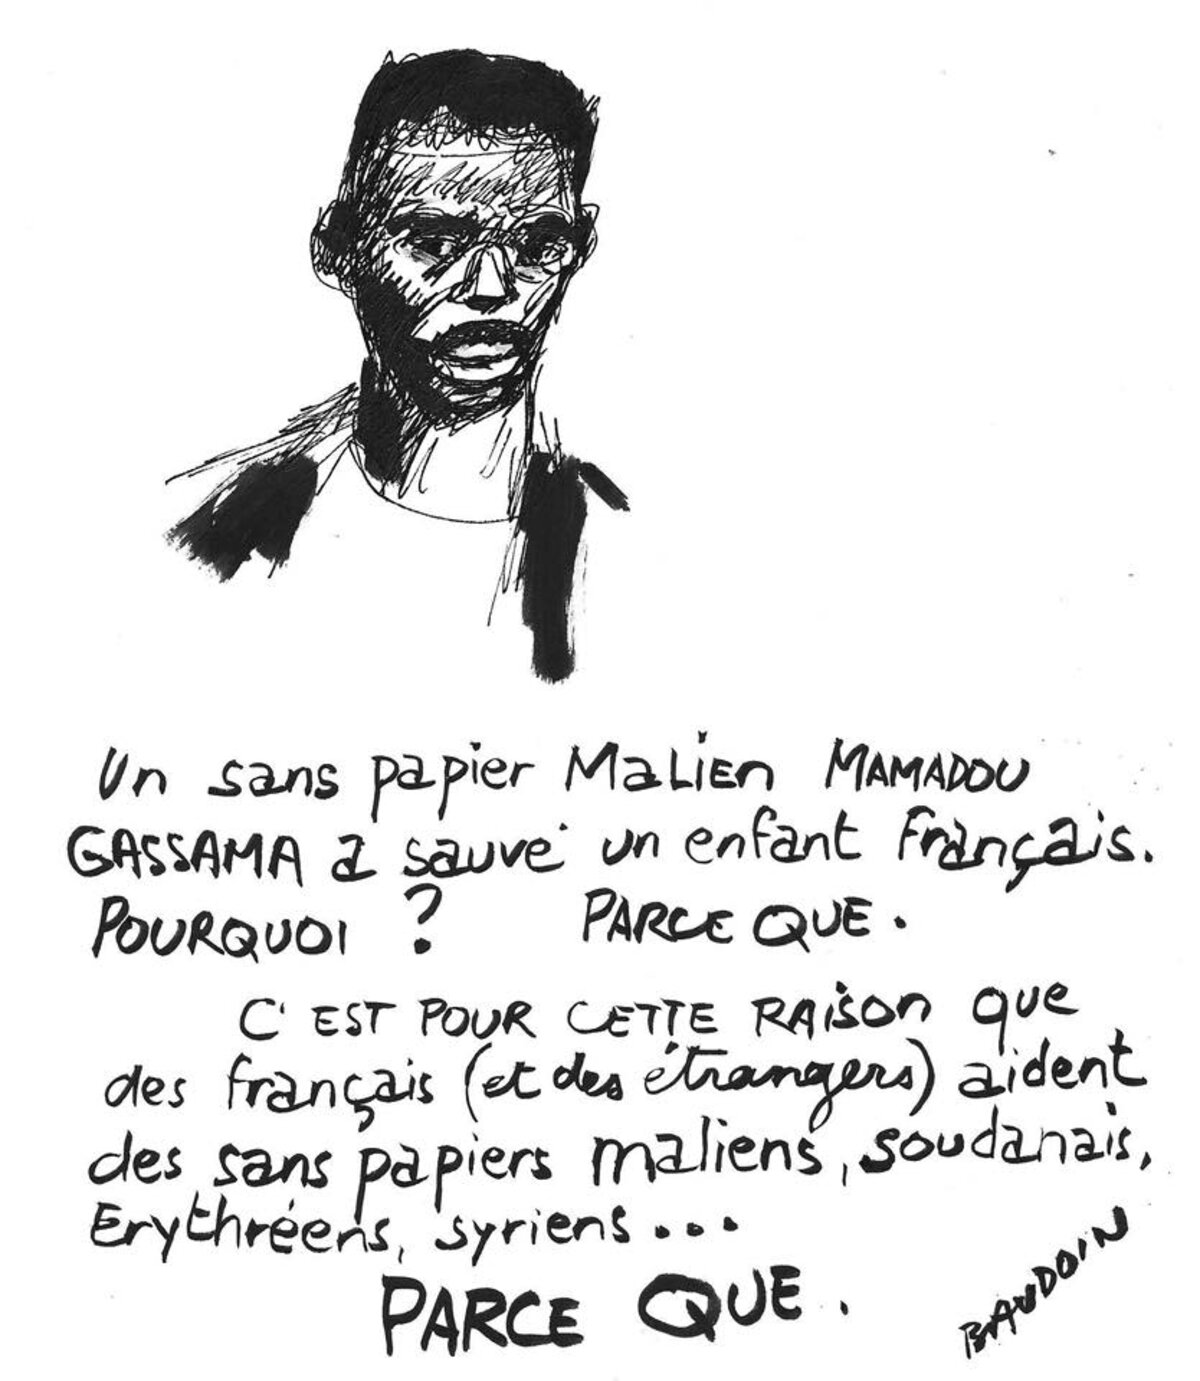 Un sans papier Malien MAMADOU
GASSAMA a sauvé un enfant français.
POURQUOI ? PARCE QUE.
C'EST POUR CETTE RAison que
des français (et des étrangers) aident
des sans papiers maliens, soudanais,
Erythréens, syriens...
PARCE QUE.
BAUDOIN